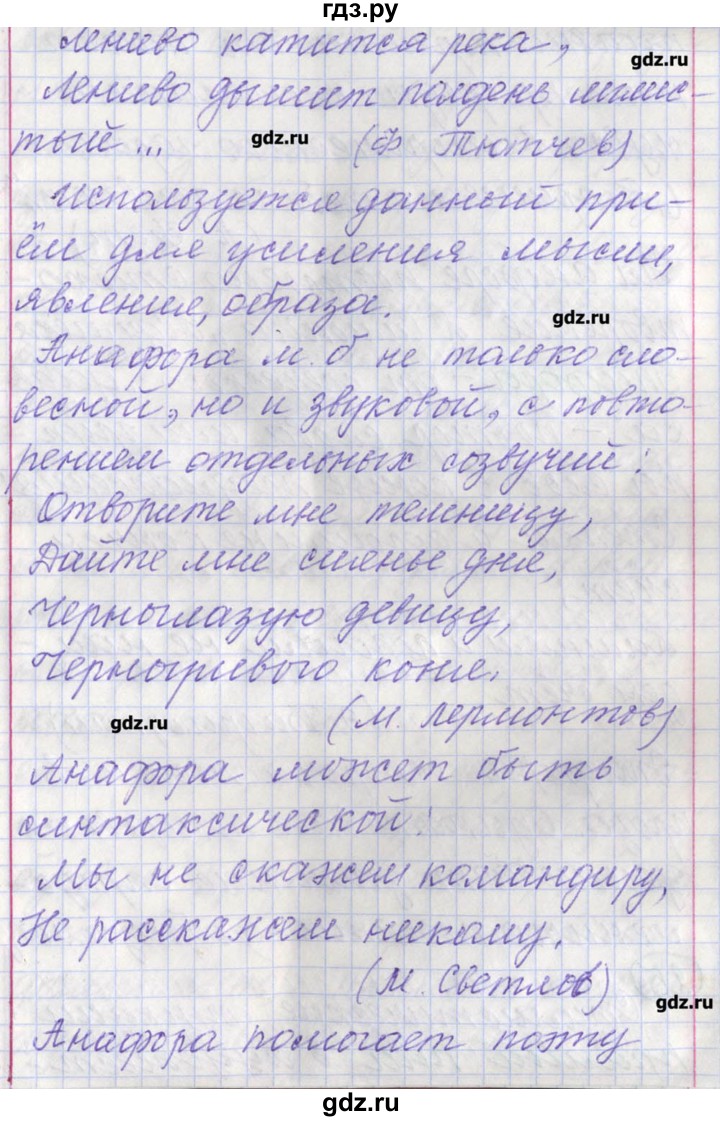 гдз.ру
Лениво катится река,
gdz.ru
Лениво дышит полдень мглис-
тый... (Ф Тютчев)
gdz.ru
Используется данный при-
ём для усиления мысли,
явления, образа.
gdz.ru
Анафора м. б не только сло-
весной, но и звуковой, с повто-
рением отдельных созвучий:
Отворите мне темницу,
Дайте мне сиянье дня,
Черноглазую девицу,
Черногривого коня.
(М. Лермонтов)
gdz.ru
Анафора может быть
синтаксической:
Мы не скажем командиру,
Не расскажем никому.
(М. Светлов)
gdz.ru
Анафора помогает поэту
gdz.ru